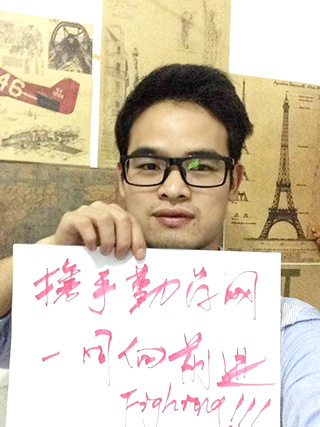 携手勤学网
一同向前进
Fighting!!!
46